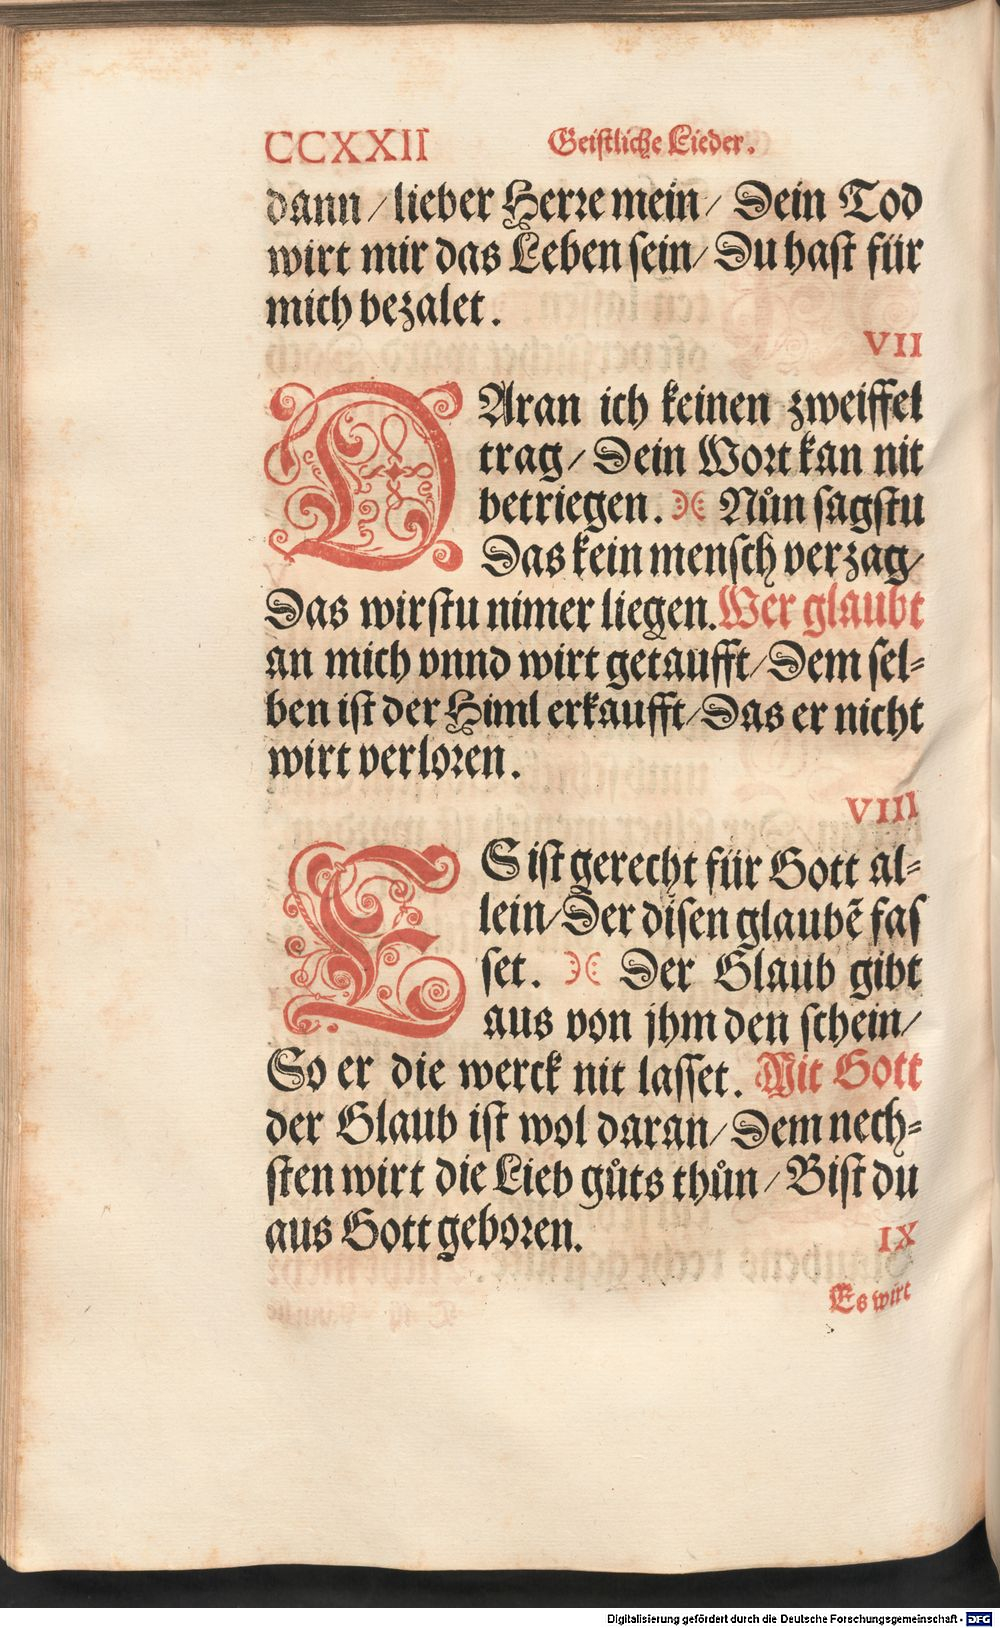 CCXXII Geistliche Lieder.
dann / lieber Herꝛe mein / Dein Tod
wirt mir das Leben sein / Du hast für
mich bezalet.
VII
DAran ich keinen zweiffel
trag / Dein Woꝛt kan nit
betriegen. Nůn sagstu
Das kein mensch verzag /
Das wirstu nimer liegen. Wer glaubt
an mich vnnd wirt getaufft / Dem sel⸗
ben ist der Himl erkaufft / Das er nicht
wirt verloꝛen.
VIII
ES ist gerecht für Gott al⸗
lein / Der disen glaubē fas
set. Der Glaub gibt
aus von jhm den schein /
So er die werck nit lasset. Mit Gott
der Glaub ist wol daran / Dem nech⸗
sten wirt die Lieb gůts thůn / Bist du
aus Gott geboꝛen.
IX
Es wirt
Digitalisierung gefördert durch die Deutsche Forschungsgemeinschaft - DFG